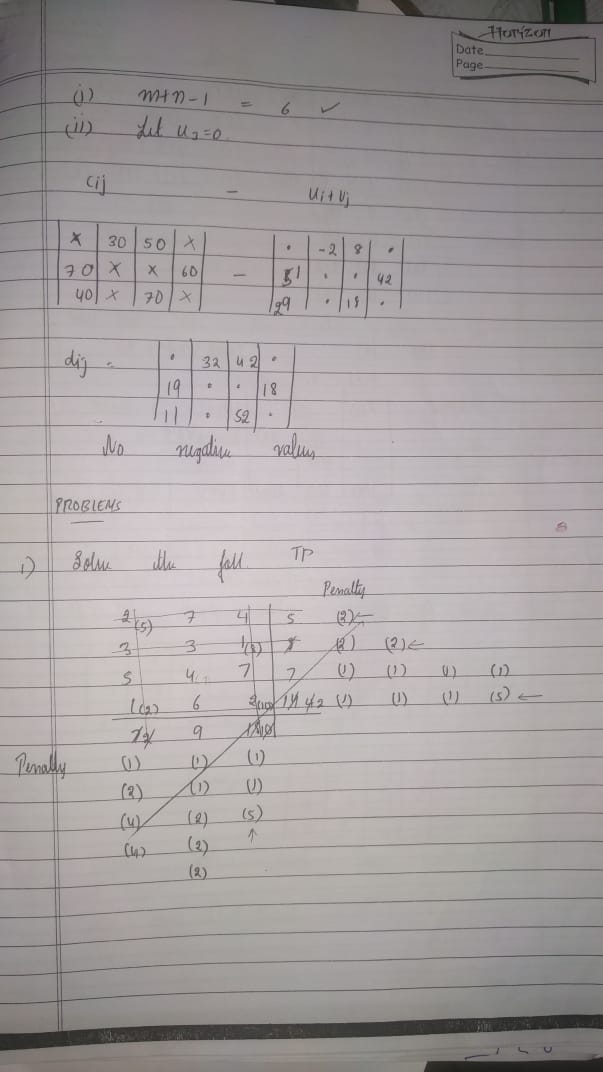 Horizon
Date
Page
(i) m+n-1 = 6 ✓
(ii) Let u3=0
Cij - Ui+Vj
x 30 50 x - • -2 8 •
70 x x 60 51 • • 42
40 x 70 x 29 • 18 •
dij = • 32 42 •
19 • • 18
11 • 52 •
No negative values
PROBLEMS
1) Solve the foll TP
Penalty
2(5) 7 4 5 (2)←
3 3 1(8) 8 (2) (2)←
5 4 7 7 (1) (1) (1) (1)
1(2) 6 2(10) 14 4 2 (1) (1) (1) (5)←
7 2 9 18 10
Penally (1) (1) (1)
(2) (1) (1)
(4) (2) (5)
(4) (2) ↑
(2)